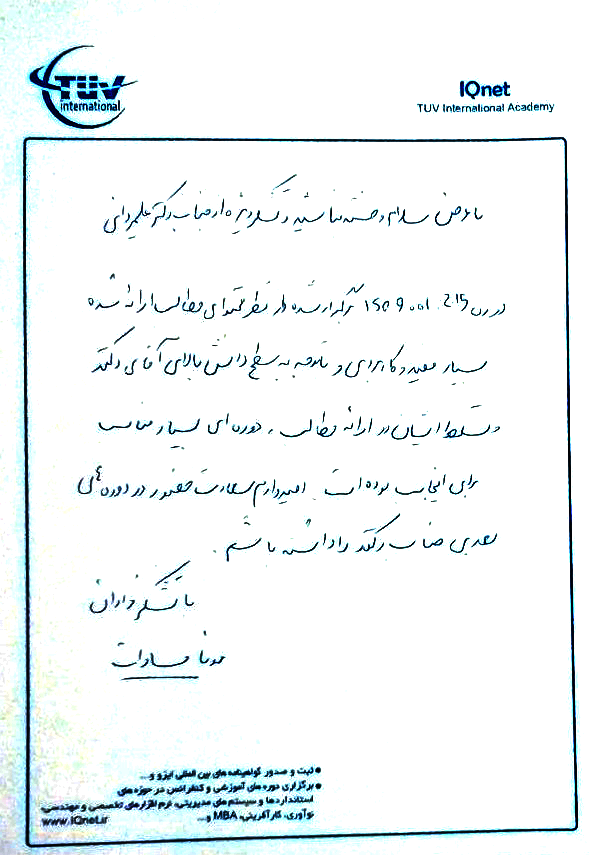 TÜV
international
IQnet
TUV International Academy
با عرض سلام و خسته نباشید و تشکر ویژه از جناب دکتر علیمردانی
دوره ISO 9001:2015 برگزار شده از نظر محتوای مطالب ارائه شده
بسیار مفید و کاربردی و باتوجه به سطح دانش بالای آقای دکتر
و تسلط ایشان در ارائه مطالب، دوره ای بسیار مناسب
برای اینجانب بوده است. امیدوارم سعادت حضور در دوره های
بعدی جناب دکتر را داشته باشم.
با تشکر فراوان
سادات
• ثبت و صدور گواهینامه های بین المللی ایزو و...
• برگزاری دوره های آموزشی و کنفرانس در حوزه های
استانداردها و سیستم های مدیریتی، نرم افزارهای تخصصی و مهندسی،
نوآوری، کارآفرینی، MBA و...
www.IQnet.ir